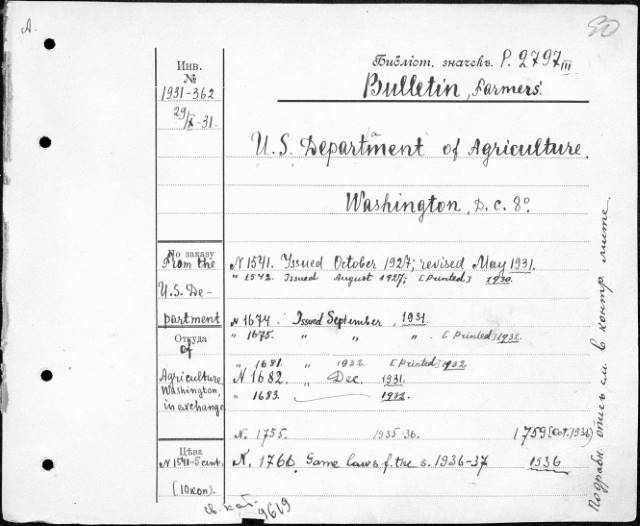 A.
80
Инв.
№
1931-362
29/X-31.
Библіот. значекъ P. 2797 III
Bulletin, Farmers'
U.S. Department of Agriculture.
Washington, D.C. 8°.
По заказу
From the
U.S. De-
partment
Откуда
of
Agriculture,
Washington,
in exchange
Цѣна
N 1541-5 cent.
(10 коп).
N 1541. Issued October 1927; revised May 1931.
" 1542. Issued August 1927; [Printed] 1930.
N 1674. Issued September, 1931.
" 1675. " " " . [Printed] 1932.
" 1681. " 1932. [Printed] 1932
N 1682. " Dec. 1931.
" 1683. 1932.
N. 1755. 1935-36. 1759 [Oct. 1936]
N. 1766. Game laws f. the s. 1936-37 1936
Подробн. опись см. в контр. листе.
св. кат.
9619